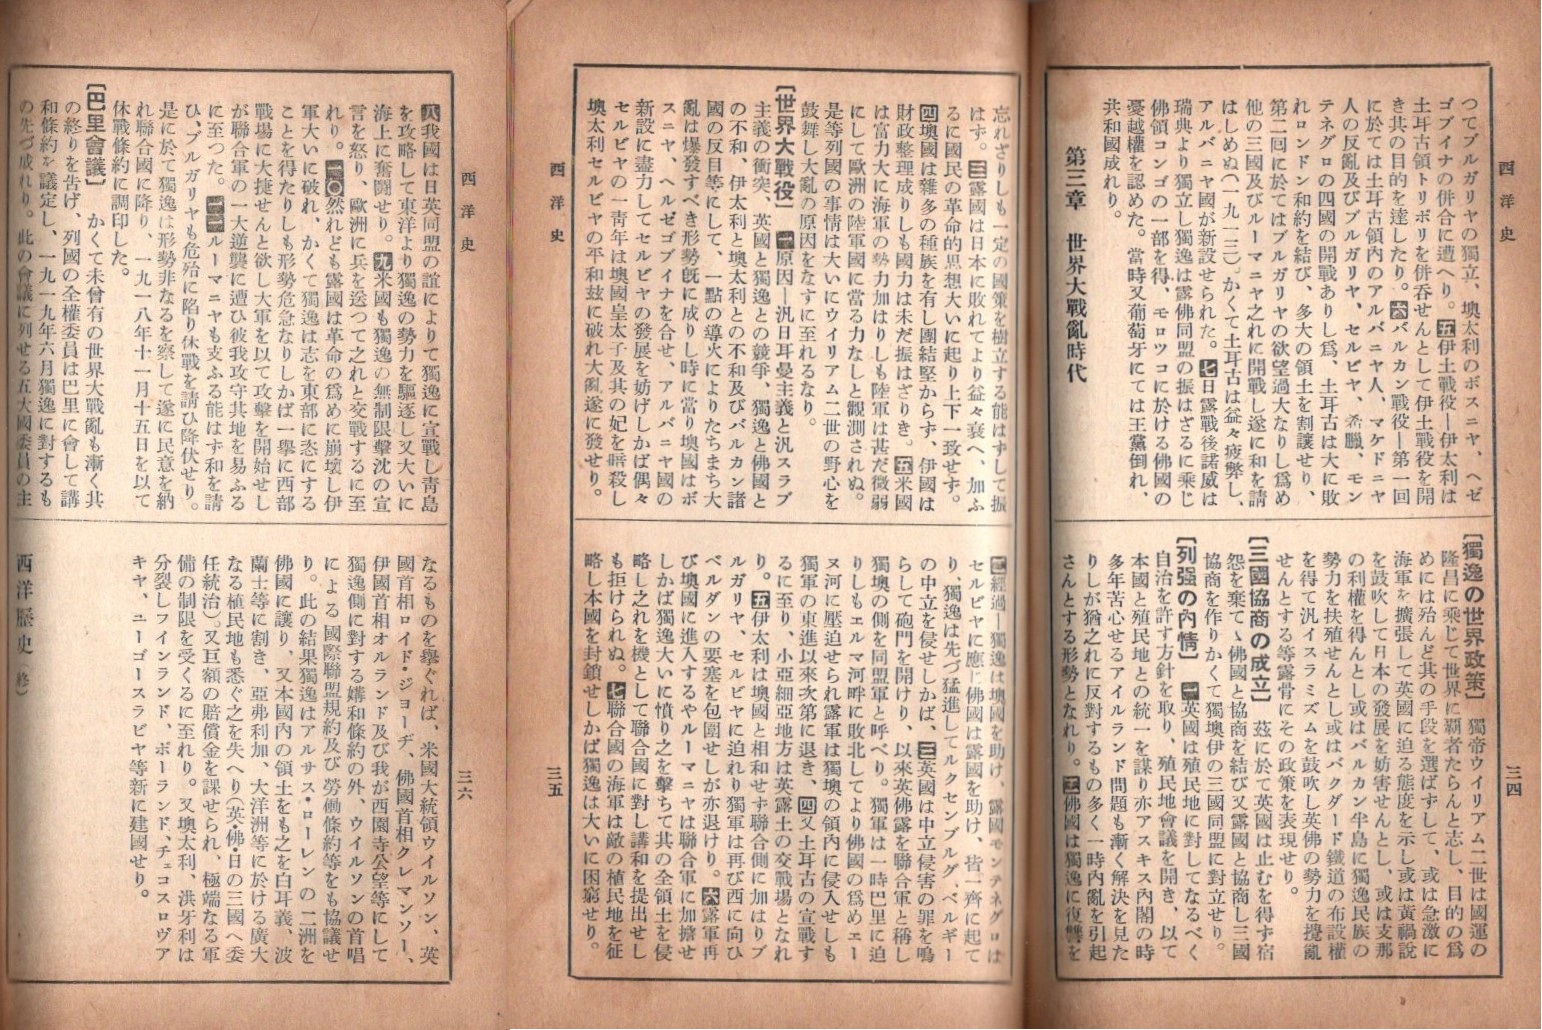 西洋史
三四
つてブルガリヤの獨立、墺太利のボスニヤ、ヘゼ
ゴブイナの併合に遭へり。五伊土戰役―伊太利は
土耳古領トリポリを併呑せんとして伊土戰役を開
き其の目的を達したり。六バルカン戰役―第一回
に於ては土耳古領內のアルバニヤ人、マケドニヤ
人の反亂及びブルガリヤ、セルビヤ、希臘、モン
テネグロの四國の開戰ありし爲、土耳古は大に敗
れロンドン和約を結び、多大の領土を割讓せり、
第二回に於てはブルガリヤの欲望過大なりし爲め
他の三國及びルーマニヤ之れに開戰し遂に和を請
はしめぬ(一九一三)。かくて土耳古は益々疲弊し、
アルバニヤ國が新設せられた。七日露戰後諾威は
瑞典より獨立し獨逸は露佛同盟の振はざるに乘じ
佛領コンゴの一部を得、モロツコに於ける佛國の
憂越權を認めた。當時又葡萄牙にては王黨倒れ、
共和國成れり。
第三章 世界大戰亂時代
[獨逸の世界政策] 獨帝ウイリアム二世は國運の
隆昌に乘じて世界に覇者たらんと志し、目的の爲
めには殆んど其の手段を選ばずして、或は急激に
海軍を擴張して英國に迫る態度を示し或は黃禍說
を鼓吹して日本の發展を妨害せんとし、或は支那
の利權を得んとし或はバルカン半島に獨逸民族の
勢力を扶殖せんとし或はバクダード鐵道の布設權
を得て汎イスラミズムを鼓吹し英佛の勢力を攪亂
せんとする等露骨にその政策を表現せり。
[三國協商の成立] 茲に於て英國は止むを得ず宿
怨を棄てゝ佛國と協商を結び又露國と協商し三國
協商を作りかくて獨墺伊の三國同盟に對立せり。
[列强の內情] 一英國は殖民地に對してなるべく
自治を許す方針を取り、殖民地會議を開き、以て
本國と殖民地との統一を謀り亦アスキス內閣の時
多年苦心せるアイルランド問題も漸く解決を見た
りしが猶之れに反對するもの多く一時內亂を引起
さんとする形勢となれり。二佛國は獨逸に復讐を
西洋史
三五
忘れざりしも一定の國策を樹立する能はずして振
はず。三露國は日本に敗れてより益々衰へ、加ふ
るに國民の革命的思想大いに起り上下一致せず。
四墺國は雜多の種族を有し團結堅からず、伊國は
財政整理成りしも國力は未だ振はざりき。五米國
は富力大に海軍の勢力加はりしも陸軍は甚だ微弱
にして歐洲の陸軍國に當る力なしと觀測されぬ。
是等列國の事情は大いにウイリアム二世の野心を
鼓舞し大亂の原因をなすに至れるなり。
[世界大戰役] 一原因―汎日耳曼主義と汎スラブ
主義の衝突、英國と獨逸との競爭、獨逸と佛國と
の不和、伊太利と墺太利との不和及びバルカン諸
國の反目等にして、一點の導火によりたちまち大
亂は爆發すべき形勢旣に成りし時に當り墺國はボ
スニヤ、ヘルゼゴブイナを合せ、アルバニヤ國の
新設に盡力してセルビヤの發展を妨げしかば偶々
セルビヤの一靑年は墺國皇太子及其の妃を暗殺し
墺太利セルビヤの平和玆に破れ大亂遂に發せり。
二經過―獨逸は墺國を助け、露國モンテネグロは
セルビヤに應じ佛國は露國を助け、皆一齊に起て
り、獨逸は先づ猛進してルクセンブルグ、ベルギー
の中立を侵せしかば、三英國は中立侵害の罪を鳴
らして砲門を開けり、以來英佛露を聯合軍と稱し
獨墺の側を同盟軍と呼べり。獨軍は一時巴里に迫
りしもエルマ河畔に敗北してより佛國の爲めエー
ヌ河に壓迫せられ露軍は獨墺の領內に侵入せしも
獨軍の東進以來次第に退き、四又土耳古の宣戰す
るに至り、小亞細亞地方は英露土の交戰場となれ
り。五伊太利は墺國と相和せず聯合側に加はりブ
ルガリヤ、セルビヤに迫れり獨軍は再び西に向ひ
ベルダンの要塞を包圍せしが亦退けり。六露軍再
び墺國に進入するやルーマニヤは聯合軍に加擔せ
しかば獨逸大いに憤り之を擊ちて其の全領土を侵
略し之れを機として聯合國に對し講和を提出せし
も拒けられぬ。七聯合國の海軍は敵の植民地を征
略し本國を封鎖せしかば獨逸は大いに困窮せり。
西洋史
三六
八我國は日英同盟の誼によりて獨逸に宣戰し靑島
を攻略して東洋より獨逸の勢力を驅逐し又大いに
海上に奮鬪せり。九米國も獨逸の無制限擊沈の宣
言を怒り、歐洲に兵を送つて之れと交戰するに至
れり。一〇然れども露國は革命の爲めに崩壞し伊
軍大いに破れ、かくて獨逸は志を東部に恣にする
ことを得たりしも形勢危急なりしかば一擧に西部
戰場に大捷せんと欲し大軍を以て攻擊を開始せし
が聯合軍の一大逆襲に遭ひ彼我攻守其地を易ふる
に至つた。一一ルーマニヤも支ふる能はず和を請
ひ、ブルガリヤも危殆に陷り休戰を請ひ降伏せり。
是に於て獨逸は形勢非なるを察して遂に民意を納
れ聯合國に降り、一九一八年十一月十五日を以て
休戰條約に調印した。
[巴里會議] かくて未曾有の世界大戰亂も漸く共
の終りを吿げ、列國の全權委員は巴里に會して講
和條約を議定し、一九一九年六月獨逸に對するも
の先づ成れり。此の會議に列せる五大國委員の主
なるものを擧ぐれば、米國大統領ウイルソン、英
國首相ロイド・ジョーヂ、佛國首相クレマンソー、
伊國首相オルランド及び我が西園寺公望等にして
獨逸側に對する媾和條約の外、ウイルソンの首唱
による國際聯盟規約及び勞働條約等をも協議せ
り。此の結果獨逸はアルサス・ローレンの二洲を
佛國に讓り、又本國內の領土をも之を白耳義、波
蘭土等に割き、亞弗利加、大洋洲等に於ける廣大
なる植民地も悉ぐ之を失へり(英・佛・日の三國へ委
任統治)。又巨額の賠償金を課せられ、極端なる軍
備の制限を受くるに至れり。又墺太利、洪牙利は
分裂しフインランド、ポーランド、チェコスロヴア
キヤ、ユーゴースラビヤ等新に建國せり。
西洋歷史(終)